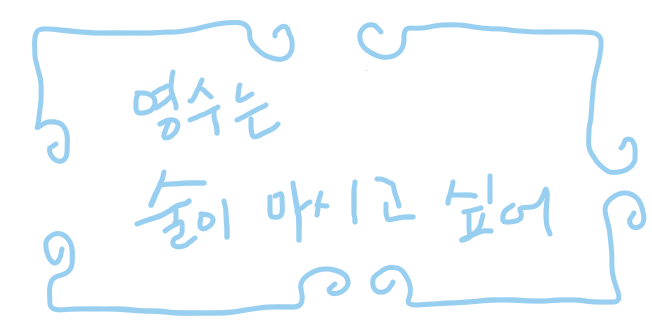 영수는
술이 마시고 싶어